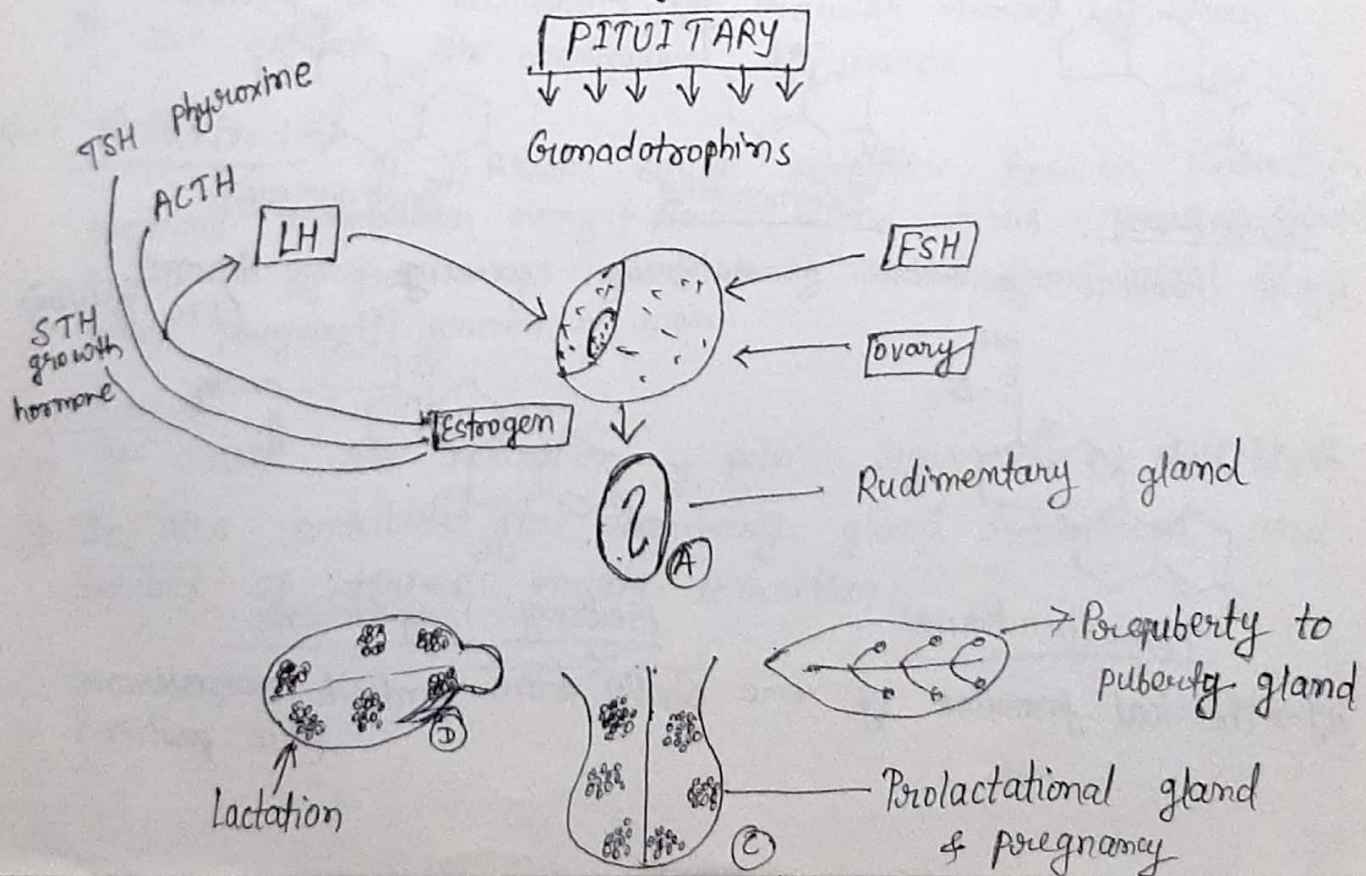 PITUITARY
Gonadotrophins
TSH phyroxine
ACTH
LH
FSH
STH
growth
hormone
ovary
Estrogen
Rudimentary gland
A
Prepuberty to
puberty gland
D
Lactation
Prolactational gland
& pregnancy
C